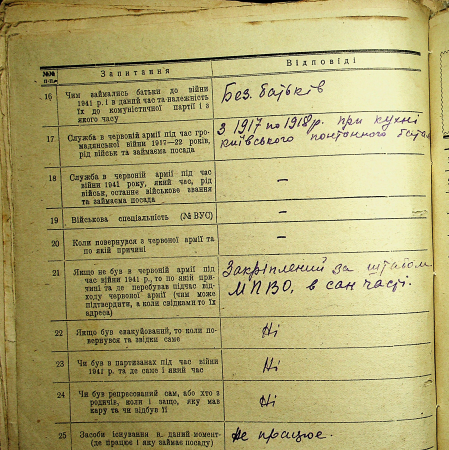 №№ п-п.
Запитання
Відповіді
16
Чим займались батьки до війни
1941 р. і в даний час та належність
їх до комуністичної партії і з
якого часу
Без. батьків
17
Служба в червоній армії під час гро-
мадянської війни 1917—22 років,
рід військ та займаєма посада
З 1917 по 1918 р. при кухні
київського понтонного батал
18
Служба в червоній армії під час
війни 1941 року, який час, рід
військ, останнє військове звання
та займаєма посада
—
19
Військова спеціяльність (№ ВУС)
—
20
Коли повернувся з червоної армії та
по якій причині
—
21
Якщо не був в червоній армії під
час війни 1941 р., то по якій при-
чині та де перебував підчас від-
ходу червоної армії (чим може
підтвердити, а коли свідками то їх
адреса)
Закріплений за штабом
МПВО, в сан часті.
22
Якщо був евакуйований, то коли по-
вернувся та звідки саме
Ні
23
Чи був в партизанах під час війни
1941 р. та де саме і який час
Ні
24
Чи був репресований сам, або хто з
родичів, коли і защо, яку мав
кару та чи відбув її
Ні
25
Засоби існування в даний момент
(де працює і яку займає посаду)
Не працює.